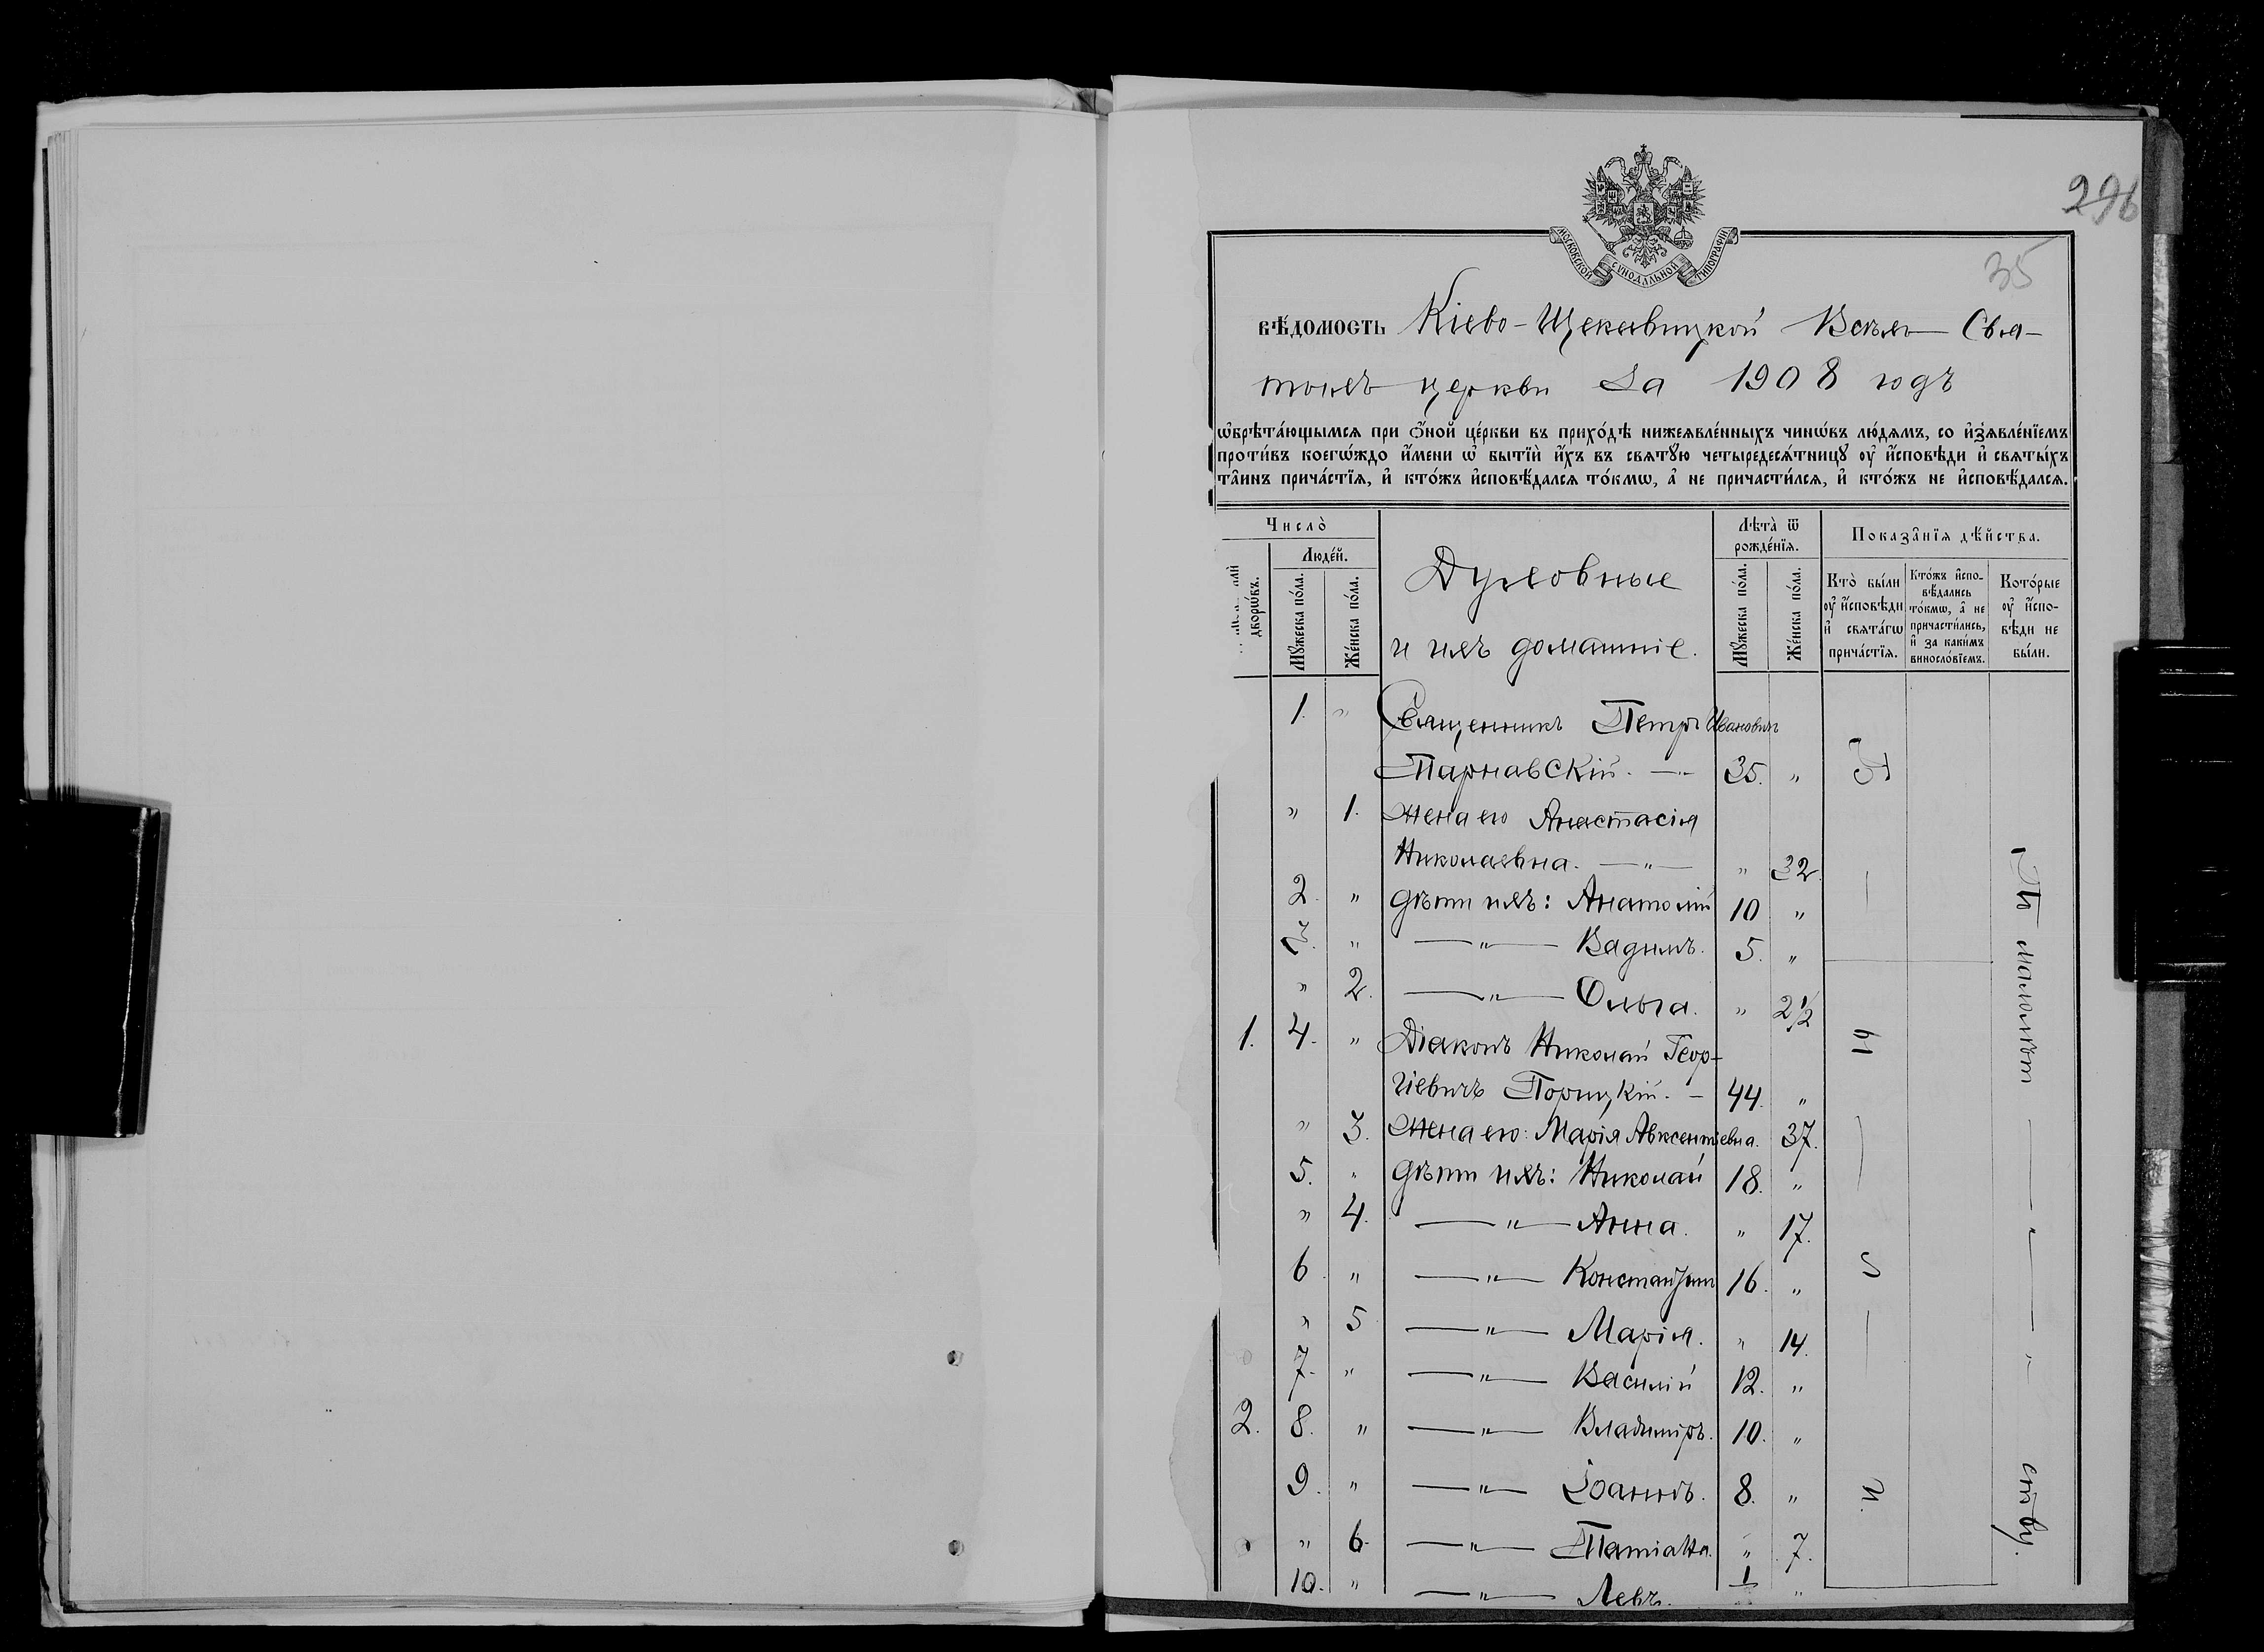 296
35
МОСКОВСКОЙ СѴНОДАЛЬНОЙ ТИПОГРАФІИ
вѣ́домость Кіево-Щекавицкой Всѣхъ-Свя-
тскихъ церкви За 1908 годъ
ѡ҆брѣта́ющымсѧ при ѻ҆́ной це́ркви въ прихо́дѣ нижеꙗвле́нныхъ чинѡ́въ лю́дѧмъ, со и҆з̾ѧвле́нїемъ
проти́въ коегѡ́ждо и҆́мени ѡ҆ бытїѝ и҆́хъ въ свѧтꙋ́ю четыредесѧ́тницꙋ ᲂу҆ и҆́сповѣди и҆ свѧты́хъ
та̑инъ прича́стїѧ, и҆ кто́жъ и҆сповѣ́далсѧ то́кмѡ, а҆ не причасти́лсѧ, и҆ кто́жъ не и҆сповѣ́далсѧ.
Число̀
Люде́й.
дворѡ́въ.
Мꙋ́жеска по́ла.
Же́нска по́ла.
Духовные
и ихъ домашніе.
Лѣта̀ ѿ
рожде́нїѧ.
Мꙋ́жеска по́ла.
Же́нска по́ла.
Показа̑нїѧ дѣ́йства.
Кто̀ бы́ли
ᲂу҆ и҆́сповѣди
и҆ свѧта́гѡ
прича́стїѧ.
Кто́жъ и҆спо-
вѣ́дались
то́кмѡ, а҆ не
причасти́лись,
и҆ за каки́мъ
виносло́вїемъ.
Кото́рые
ᲂу҆ и҆спо-
вѣди не
бы́ли.
1. " Священникъ Петръ Ивановичъ
Тарнавскій. — 35. "
" 1. жена его Анастасія
Николаевна. —"— " 32.
2. " дѣти ихъ: Анатолій 10 "
3. " —"— Вадимъ. 5. "
" 2. —"— Ольга. " 2½
1. 4. " Діаконъ Николай Геор-
гіевичъ Порицкій. — 44. "
" 3. Жена его: Марія Авксентіевна. 37.
5. " дѣти ихъ: Николай 18. "
" 4. —"— Анна. " 17.
6. " —"— Константинъ 16. "
" 5 —"— Марія. " 14.
7. " —"— Василій 12. "
2. 8. " —"— Владиміръ. 10. "
9. " —"— Іоаннъ. 8. "
" 6. —"— Татіана. " 7.
10. " —"— Левъ. 1 "
Б — ы — л — и.
По малолѣт — " — " — ству.